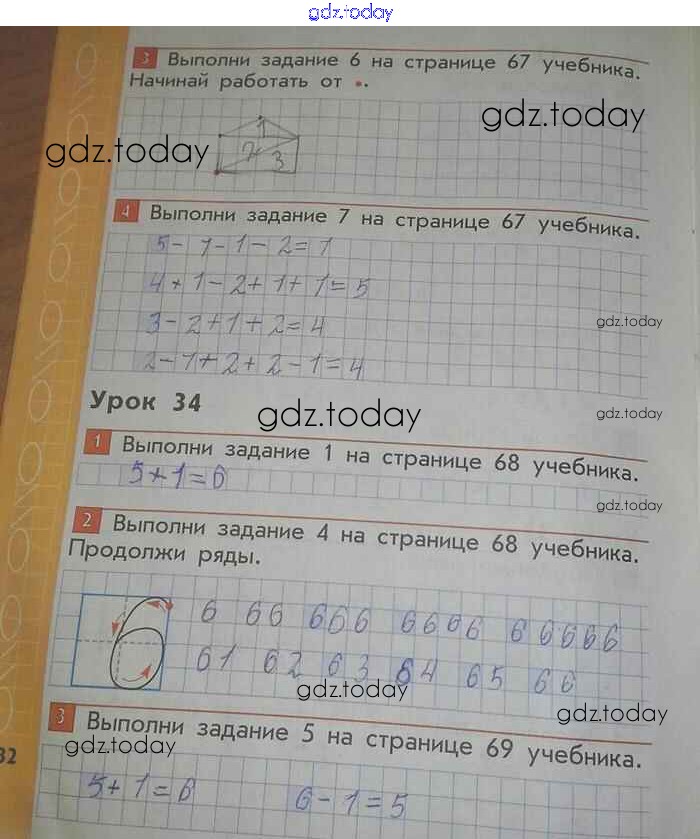 gdz.today
3 Выполни задание 6 на странице 67 учебника.
Начинай работать от •.
gdz.today
gdz.today
1
2 3
4 Выполни задание 7 на странице 67 учебника.
5-1-1-2=1
4+1-2+1+1=5
3-2+1+2=4
gdz.today
2-1+2+2-1=4
Урок 34
gdz.today
gdz.today
1 Выполни задание 1 на странице 68 учебника.
5+1=6
gdz.today
2 Выполни задание 4 на странице 68 учебника.
Продолжи ряды.
6 66 666 6666 66666
61 62 63 64 65 66
gdz.today
gdz.today
3 Выполни задание 5 на странице 69 учебника.
gdz.today
32
5+1=6 6-1=5